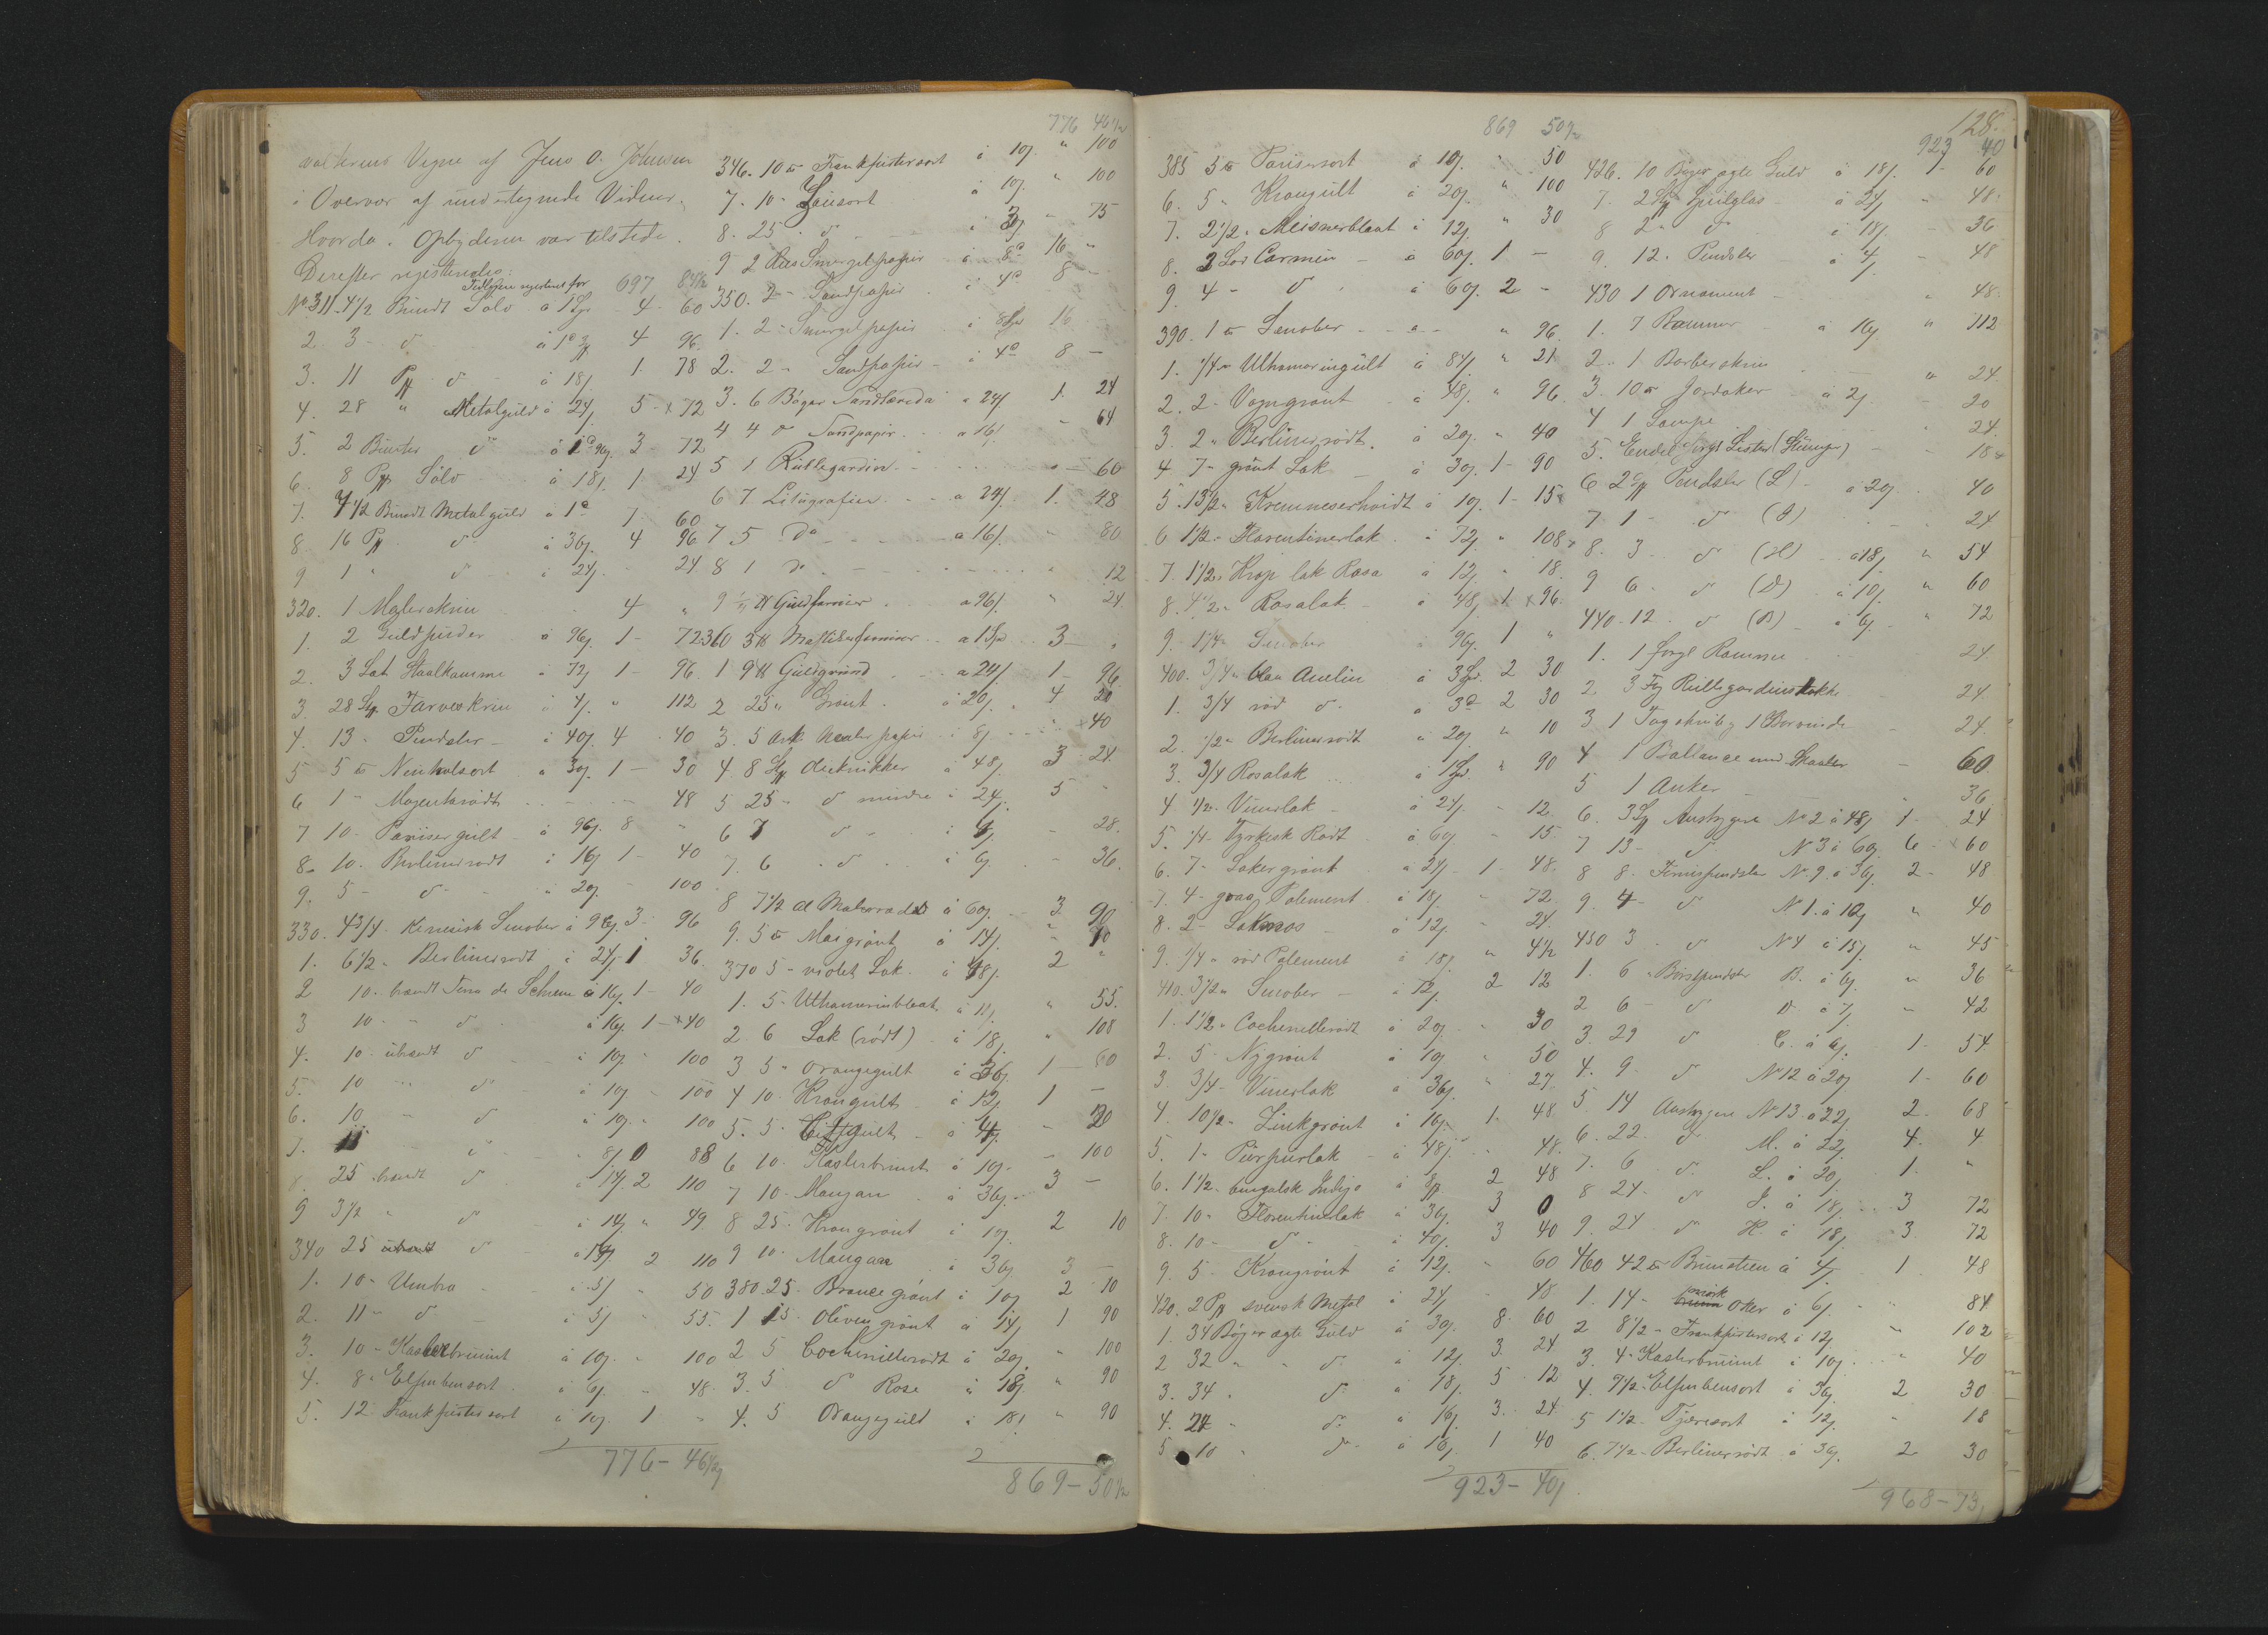 valterus Vegne af Jens O. Johnsen
i Overvær af undertegnede Vidner.
Hvorda Opbyderen var tilstede.
Derefter registreredes:
Tidligere registreret for 697 84½
No 311 - 4½ Bundt Sølv a 1 Spd 4 - 60
2. 3 - do à 1 4 96
3. 11 Pk do à 18/ 1 78
4. 28 " Metalguld à 24/ 5 - 72
5. 2 Bunter do 3 - 72
6. 8 Pk Sølv à 18/ 1 24
7. 7 1/2 Bundt Metalguld a 1 7 60
8. 16 Pk do à 36/ 4 96
9 1 " do à 24/ 24
320. 1 Malerskrin 4 "
1. 2 Guldpuder à 96/ 1 - 72
2. 3 Sat Staalkamme à 72/ 1 - 96
3. 28 St Farveskrin à 4/ " 112
4. 13 - Pendsler - à 40/ 4 40
5 5 ℔ Neuholsort à 30/ 1 - 30
6 1 - Magentarødt 48
7 10 - Parisergult - à 96/ 8 "
8. 10. Berlinerrødt à 16/ 1 - 40
9. 5 - do - à 20/ - 100
330. 4 3/4 - Kemisk Sinober à 96/ 3 - 96
1. 6 1/2 - Berlinerrødt à 24/ 1 36
2 10 - brændt Terra de Sienna à 16/ 1 - 40
3 10 - " do à 16/ 1 - 40
4. 10 - ubrændt do à 10/ " 100
5. 10 " do à 10/ - 100
6. 10 - do à 10/ " 100
7. 11 - do 8/ 0 88
8. 25 brændt do à 14/ 2 110
9 3 1/2 " do à 14/ " 49
340 25 ubrændt do à 14/ 2 110
1. 10 - Umbra à 5/ 50
2. 11 - do - à 5/ " 55
3. 10 - Kaslerbruunt à 10/ " 100
4. 8 - Elfenbensort à 6/ " 48
5. 12 Frankfurtersort à 10/ 1 "
776 - 46½
776 46½
346. 10 ℔ Frankfurtersort à 10/ " 100
7. 10 - à 10/ " 100
8. 25 - do à 3/ " 75
9 2 Smergelpapir à 8 16 "
350. 2 - Sandpapir à 4 8 -
1. 2 - Smergelpapir à 8 Spd 16
2. 2 - Sandpapir - à 4 8 -
3. 6 Bøger a 24/ 1. 24
4 4 do Sandpapir a 16/ " 64
5 1 Rullegardin " - 60
6 7 Litografier a 24/ 1. 48
7 5 Do a 16/ " 80
8 1 Do 12
9 Guldfernis a 96/ " 24
360 3 ℔ Mastikfernis a 1 Spd 3 - "
1 9 ℔ Guldgrund a 24/ 1 - 96
2 23 " Grønt à 20/ 4 20
3. 5 Ark Maler papir à 8/ 40
4. 8 St à 48/ 3 24
5 25 - do mindre à 24/ 5 "
6 7 do à 4/ - 28
7. 6 do à 6/ 36
8 7 1/2 à 60/ 3 90
9. 5 ℔ Maigrønt à 14/ " 70
370 5 - violet Lak à 48/ 2 "
1. 5 - Ultramarinblaat à 11/ " 55
2. 6 Lak (rødt) à 18/ " 108
3 5 - Orangegult à 36/ 1 - 60
4 10 - Krongult à 12/ 1 -
5. 5 - gult à 4/ " 20
6 10 - Kaslerbruunt à 10/ " 100
7 10 - Mangan à 36/ 3 -
8 25 - Krongrønt à 10/ 2 10
9 10 - Mangan à 36/ 3 -
380. 25 - grønt à 10/ 2 10
1 15 - Olivengrønt à 14/ 1 90
2 5 Cochenillerødt à 20/ " 100
3. 5 do Rosa à 18/ " 90
4. 5 Orangegult à 18/ " 90
869 - 50½
869 50½
385 5 ℔ Parisersort à 10/ 50
6. 5 - Krongult à 20/ " 100
7. 2 1/2 - Meisnerblaat à 12/ " 30
8. 2 Lod Carmin - à 60/ 1 -
9. 4 - do à 60/ 2 -
390. 1 ℔ Sinober " 96
1. 1/4 - Ultramaringult à 84/ " 21
2. 2 - Vogngrønt à 48/ " 96
3. 2 - Berlinerrødt à 20/ " 40
4 7 - grønt Lak - à 30/ 1 - 90
5. 13 1/2 - Kremneserhvidt à 10/ 1 - 15
6 1 1/2 - Florentinerlak à 72/ " 108
7 1 1/2 - lak Rosa à 12/ " 18
8. 4 1/2 - Rosalak - à 48/ 1 96
9. 1 1/4 - Sinober à 96/ 1 "
400. 3/4 - blaa Anilin à 3 Spd 2 30
1. 3/4 rød do à 3 2 30
2. 1/2 - Berlinerrødt à 20/ " 10
3. 3/4 Rosalak à 1 Spd " 90
4 1/2 - Vinerlak - à 24/ " 12
5. 1/4 - Tyrkisk Rødt à 60/ " 15
6. 7 - Lakergrønt à 24/ - 1 - 48
7. 4 - graa Palement à 18/ " 72
8. 2 - Lakmos - à 12/ 24
9. 1/4 - rød Palement à 18/ " 4½
410. 3 1/2 - Sinober - à 72/ 2 12
1. 1 1/2 - Cochenillerødt à 20/ 30
2. 5 - Nygrønt à 10/ " 50
3. 3/4 - Vinerlak à 36/ " 27
4. 10 1/2 - Zinkgrønt à 16/ 1 - 48
5. 1 - Purpurlak - à 48/ " 48
6. 1 1/2 - bengalsk Indigo à 2 48
7. 10 - Florentinerlak à 36/ 3 0
8. 10 - do - à 40/ 3 40
9. 5 - Krongrønt à 12/ " 60
420. 2 Pk svensk Metal à 24/ " 48
1. 34 Bøger ægte Guld à 30/ 8. 60
2 32 " " do à 12/ 3. 24
3. 34 " do à 18/ 5 12
4. 24 " do à 16/ 3. 24
5 10 " do à 16/ 1 40
923 - 40/
128.
923 40
426. 10 Bøger ægte Guld à 18/ 1 - 60
7. 2 St Speilglas à 24/ " 48
8 2 - do à 18/ - 36
9. 12 - Pendsler - à 4/ - 48
430 1 Ornament - " 48
1. 7 Rammer à 16/ " 112
2. 1 Barberskrin " 24
3. 10 ℔ Jordoker à 2/ - 20
4 1 Lampe " 24
5. Endel forgt Lister (Stumper) - 18
6 2 St Pendsler (L) - à 20/ 40
7 1 - do 24
8. 3 - do (H) à 18/ " 54
9 6 - do (D) à 10/ " 60
440. 12 - do (B) à 6/ " 72
1. 1 forgt Ramme 24
2 3 Rullegardinstokke 24
3 1 24
4 1 Ballance med Skaaler - 60
5 1 Anker - " 36
6. 3 St Anstrygere No 2 à 48/ 1 - 24
7 13 - do No 3 à 60/ 6 - 60
8 8 - Fernispendsler No 9 à 36/ 2 - 48
9. 4 - do No 1. à 10/ " 40
450 3 - do No 4 à 15/ " 45
1. 6 - Børstpendsler B. à 6/ " 36
2 6 - do D. à 7/ " 42
3. 29 do C. à 6/ 1 - 54
4. 9 - do No 12 à 20/ 1 - 60
5 14 Anstrygere No 13 à 22/ 2. 68
6. 22. do M. à 22/ 4. 4
7. 6 do L. à 20/ 1. "
8 24 - do J. à 18/ 3 72
9. 24 do K. à 18/ 3. 72
460 42 ℔ Brunsteen à 4/ 1 48
1. 14 - mørk Oker à 6/ " 84
2 8 1/2 - Frankfurtersort à 12/ " 102
3. 4 - Kaslerbruunt à 10/ " 40
4. 7 1/2 - Elfenbensort à 36/ 2 30
5 1 1/2 - Tjæresort à 12/ " 18
6. 7 1/2 - Berlinerrødt à 36/ 2 30
968 - 73